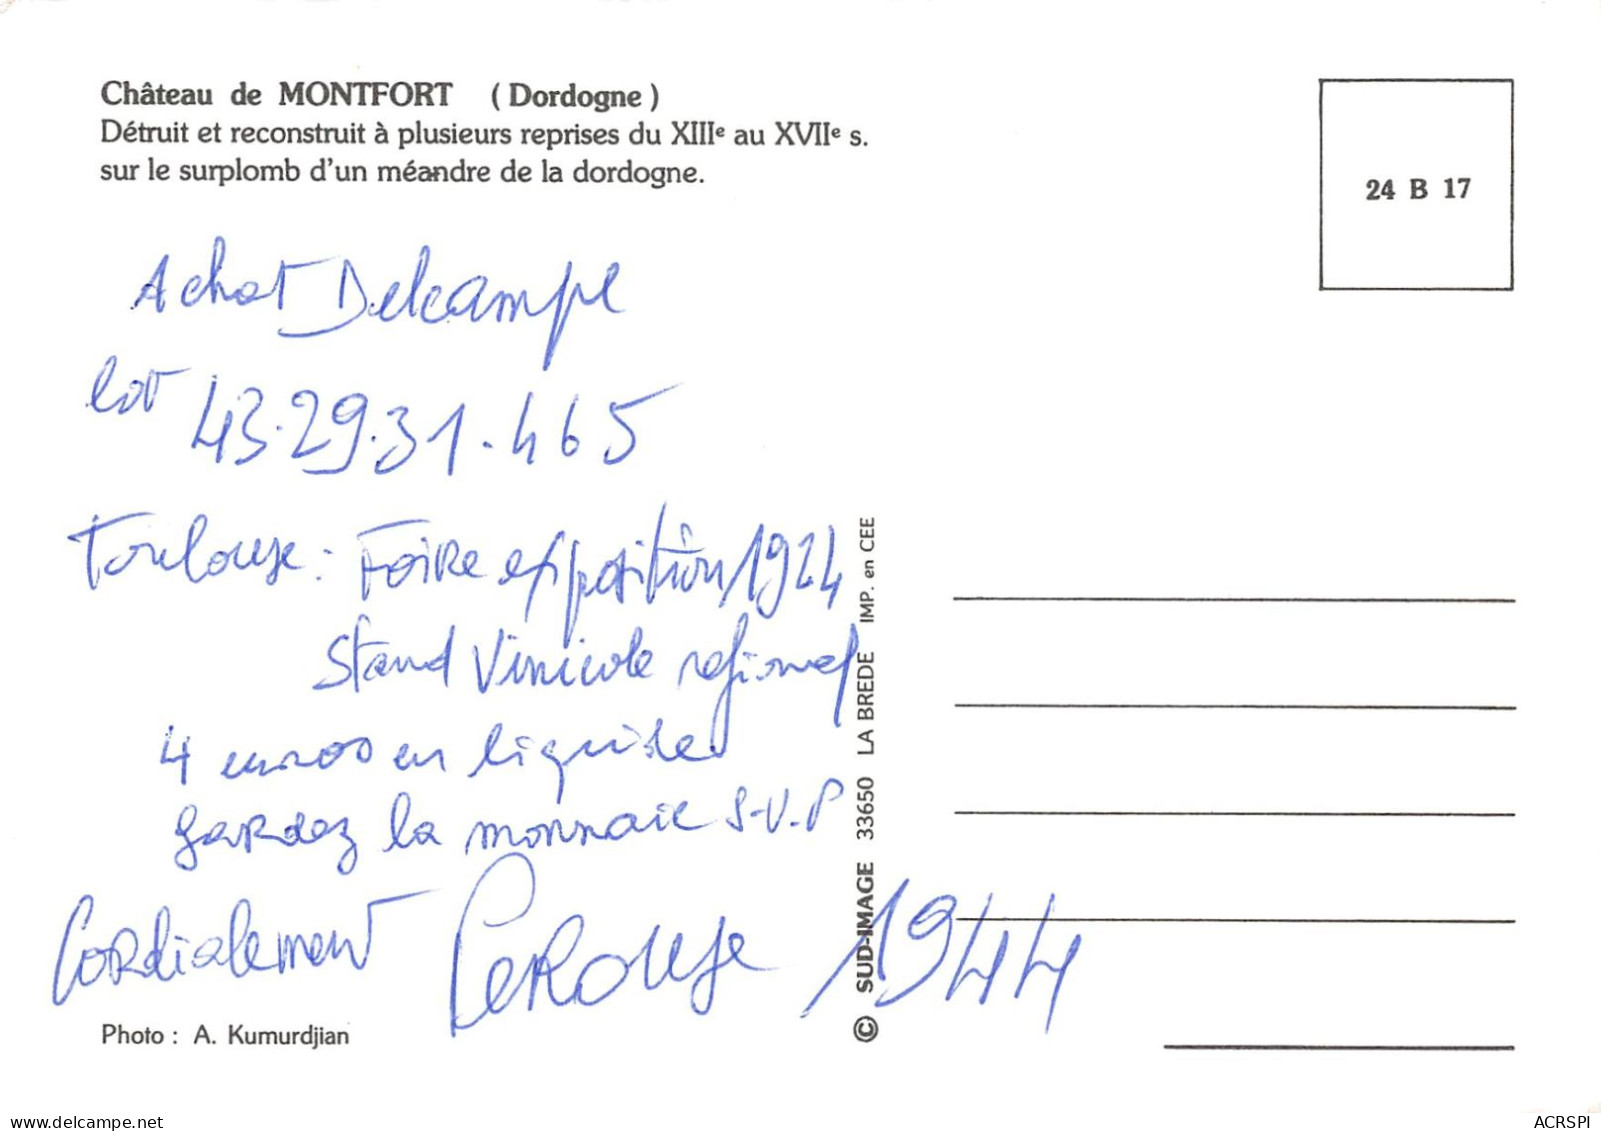 Château de MONTFORT ( Dordogne )
Détruit et reconstruit à plusieurs reprises du XIIIe au XVIIe s.
sur le surplomb d'un méandre de la dordogne.
24 B 17
Achat Delcampe
lot 43.29.31.465
Toulouse : Foire exposition 1924
Stand Vinicole régional
4 euros en liquide
gardez la monnaie S.V.P
Cordialement Perouse 1944
Photo : A. Kumurdjian
© SUD-IMAGE 33650 LA BREDE IMP. en CEE
www.delcampe.net
ACRSPI